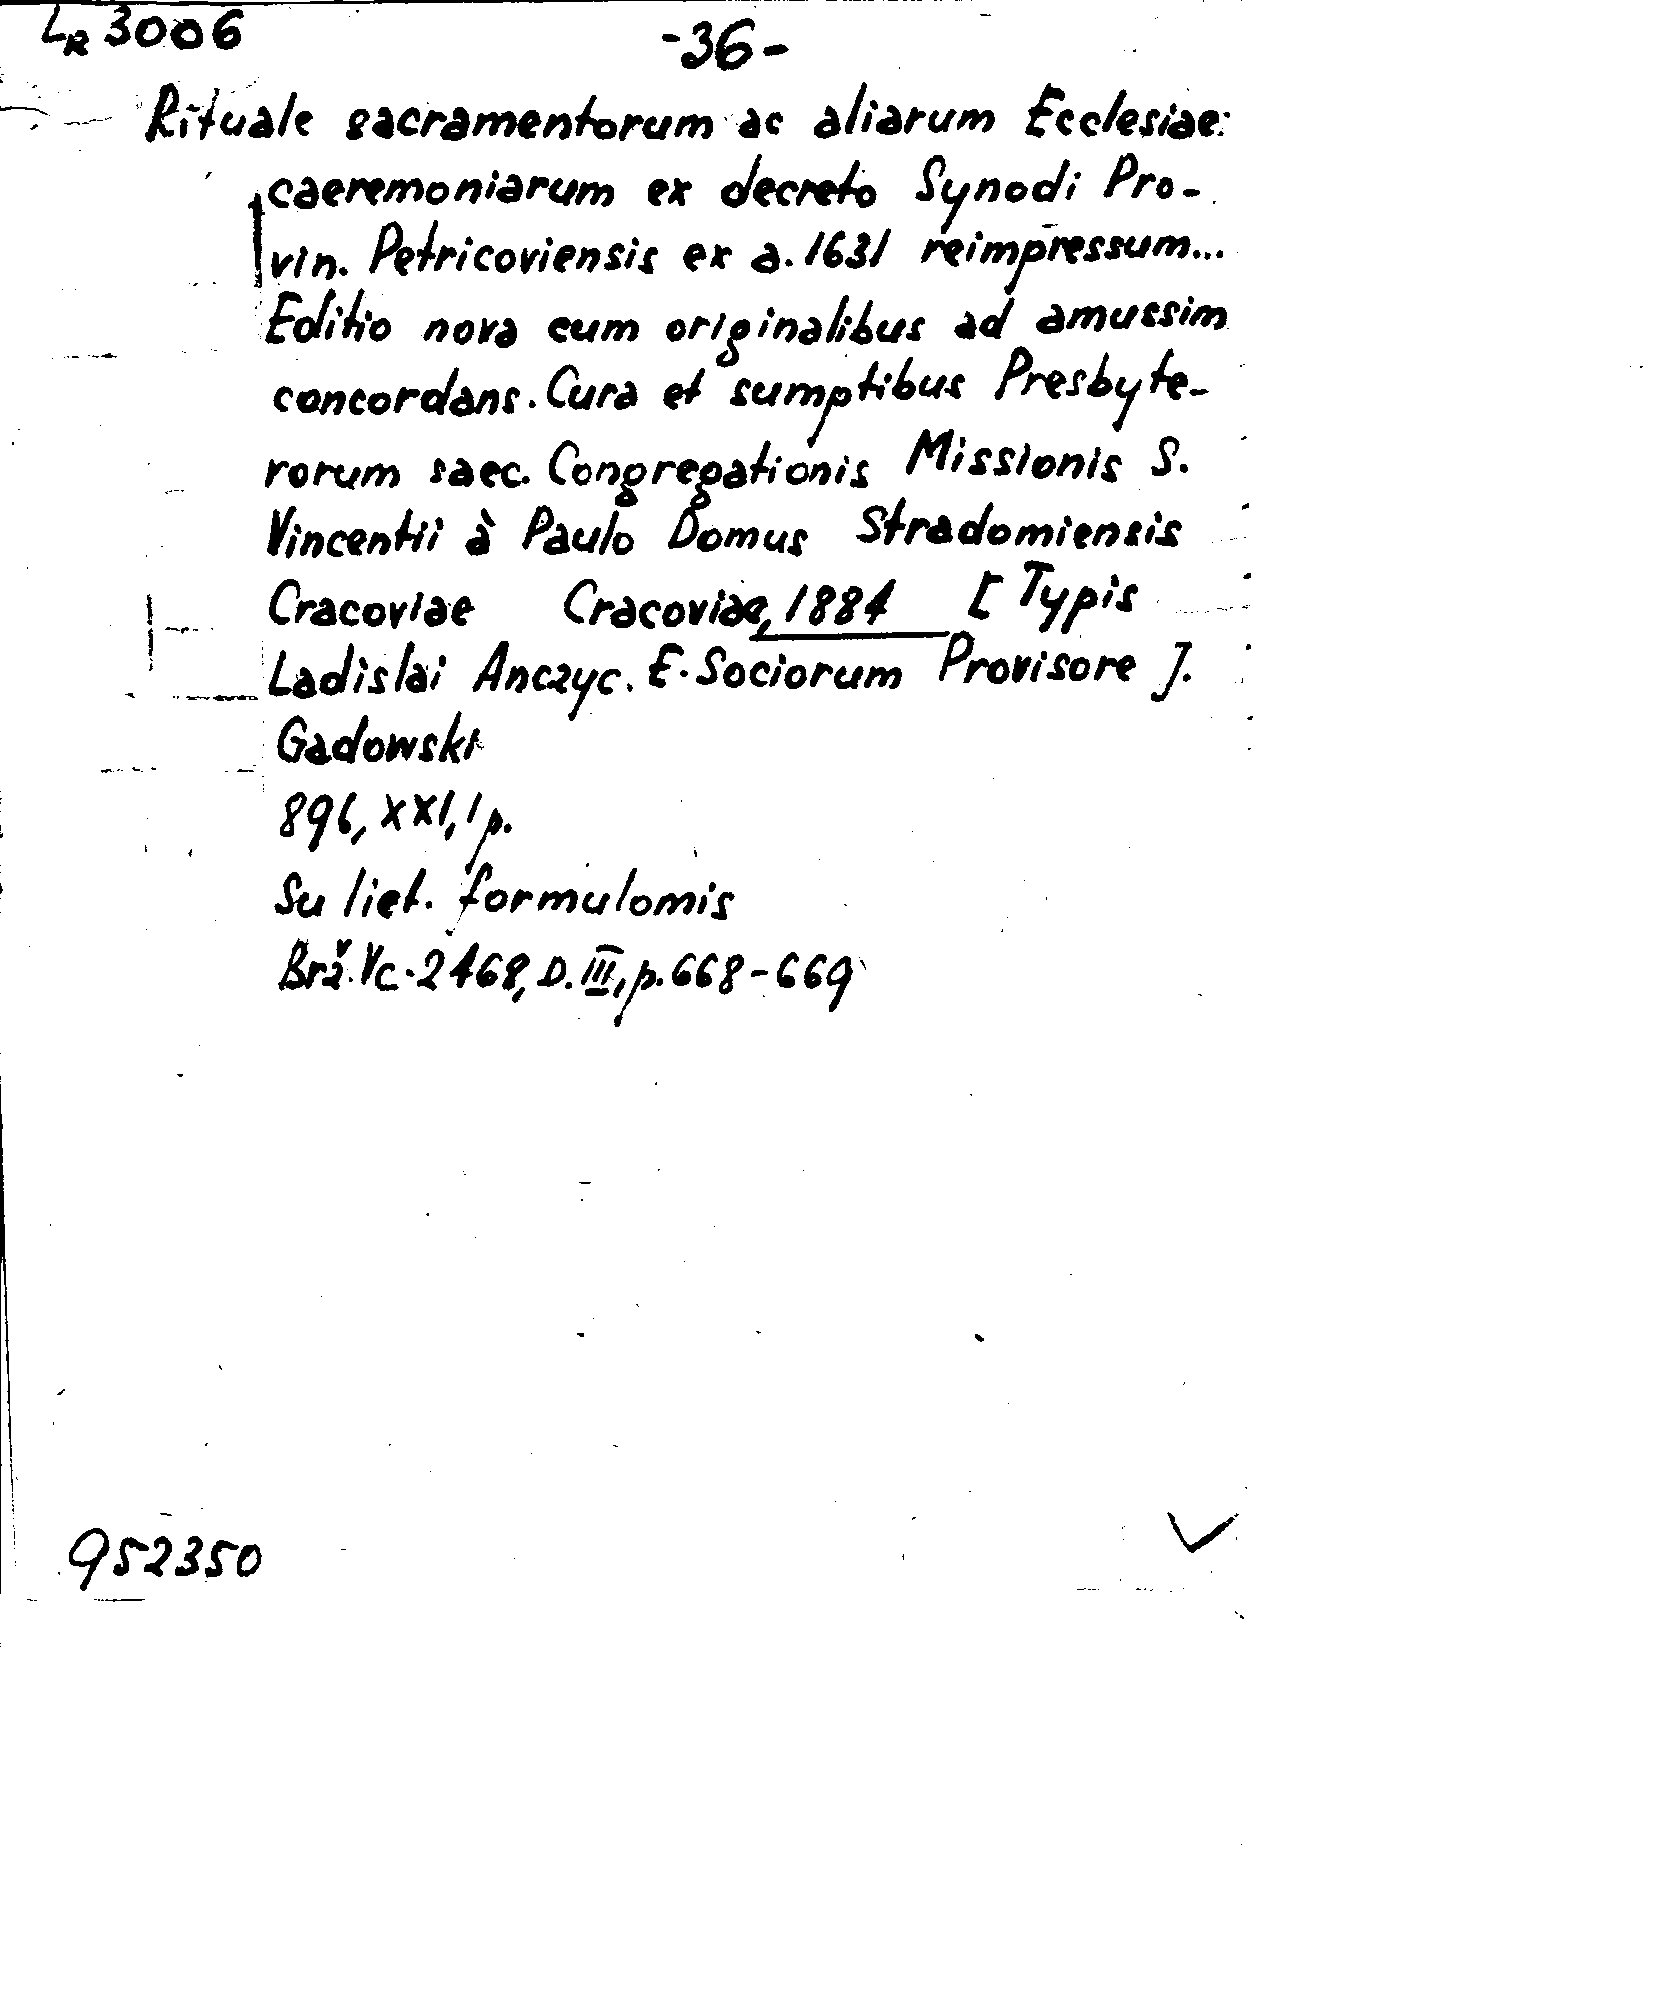 LR 3006
-36-
Rituale sacramentorum ac aliarum Ecclesiae
caeremoniarum ex decreto Synodi Pro-
vin. Petricoviensis ex a. 1631 reimpressum...
Editio nova cum originalibus ad amussim
concordans. Cura et sumptibus Presbyte-
rorum saec. Congregationis Missionis S.
Vincentii à Paulo Domus Stradomiensis
Cracoviae Cracoviae, 1884 [Typis
Ladislai Anczyc. E. Sociorum Provisore J.
Gadowski
896, XXI, 1 p.
Su liet. formulomis
Brž. Vc. 2468, D. III, p. 668-669
952350